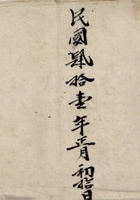 民國貳拾壹年四月初十日